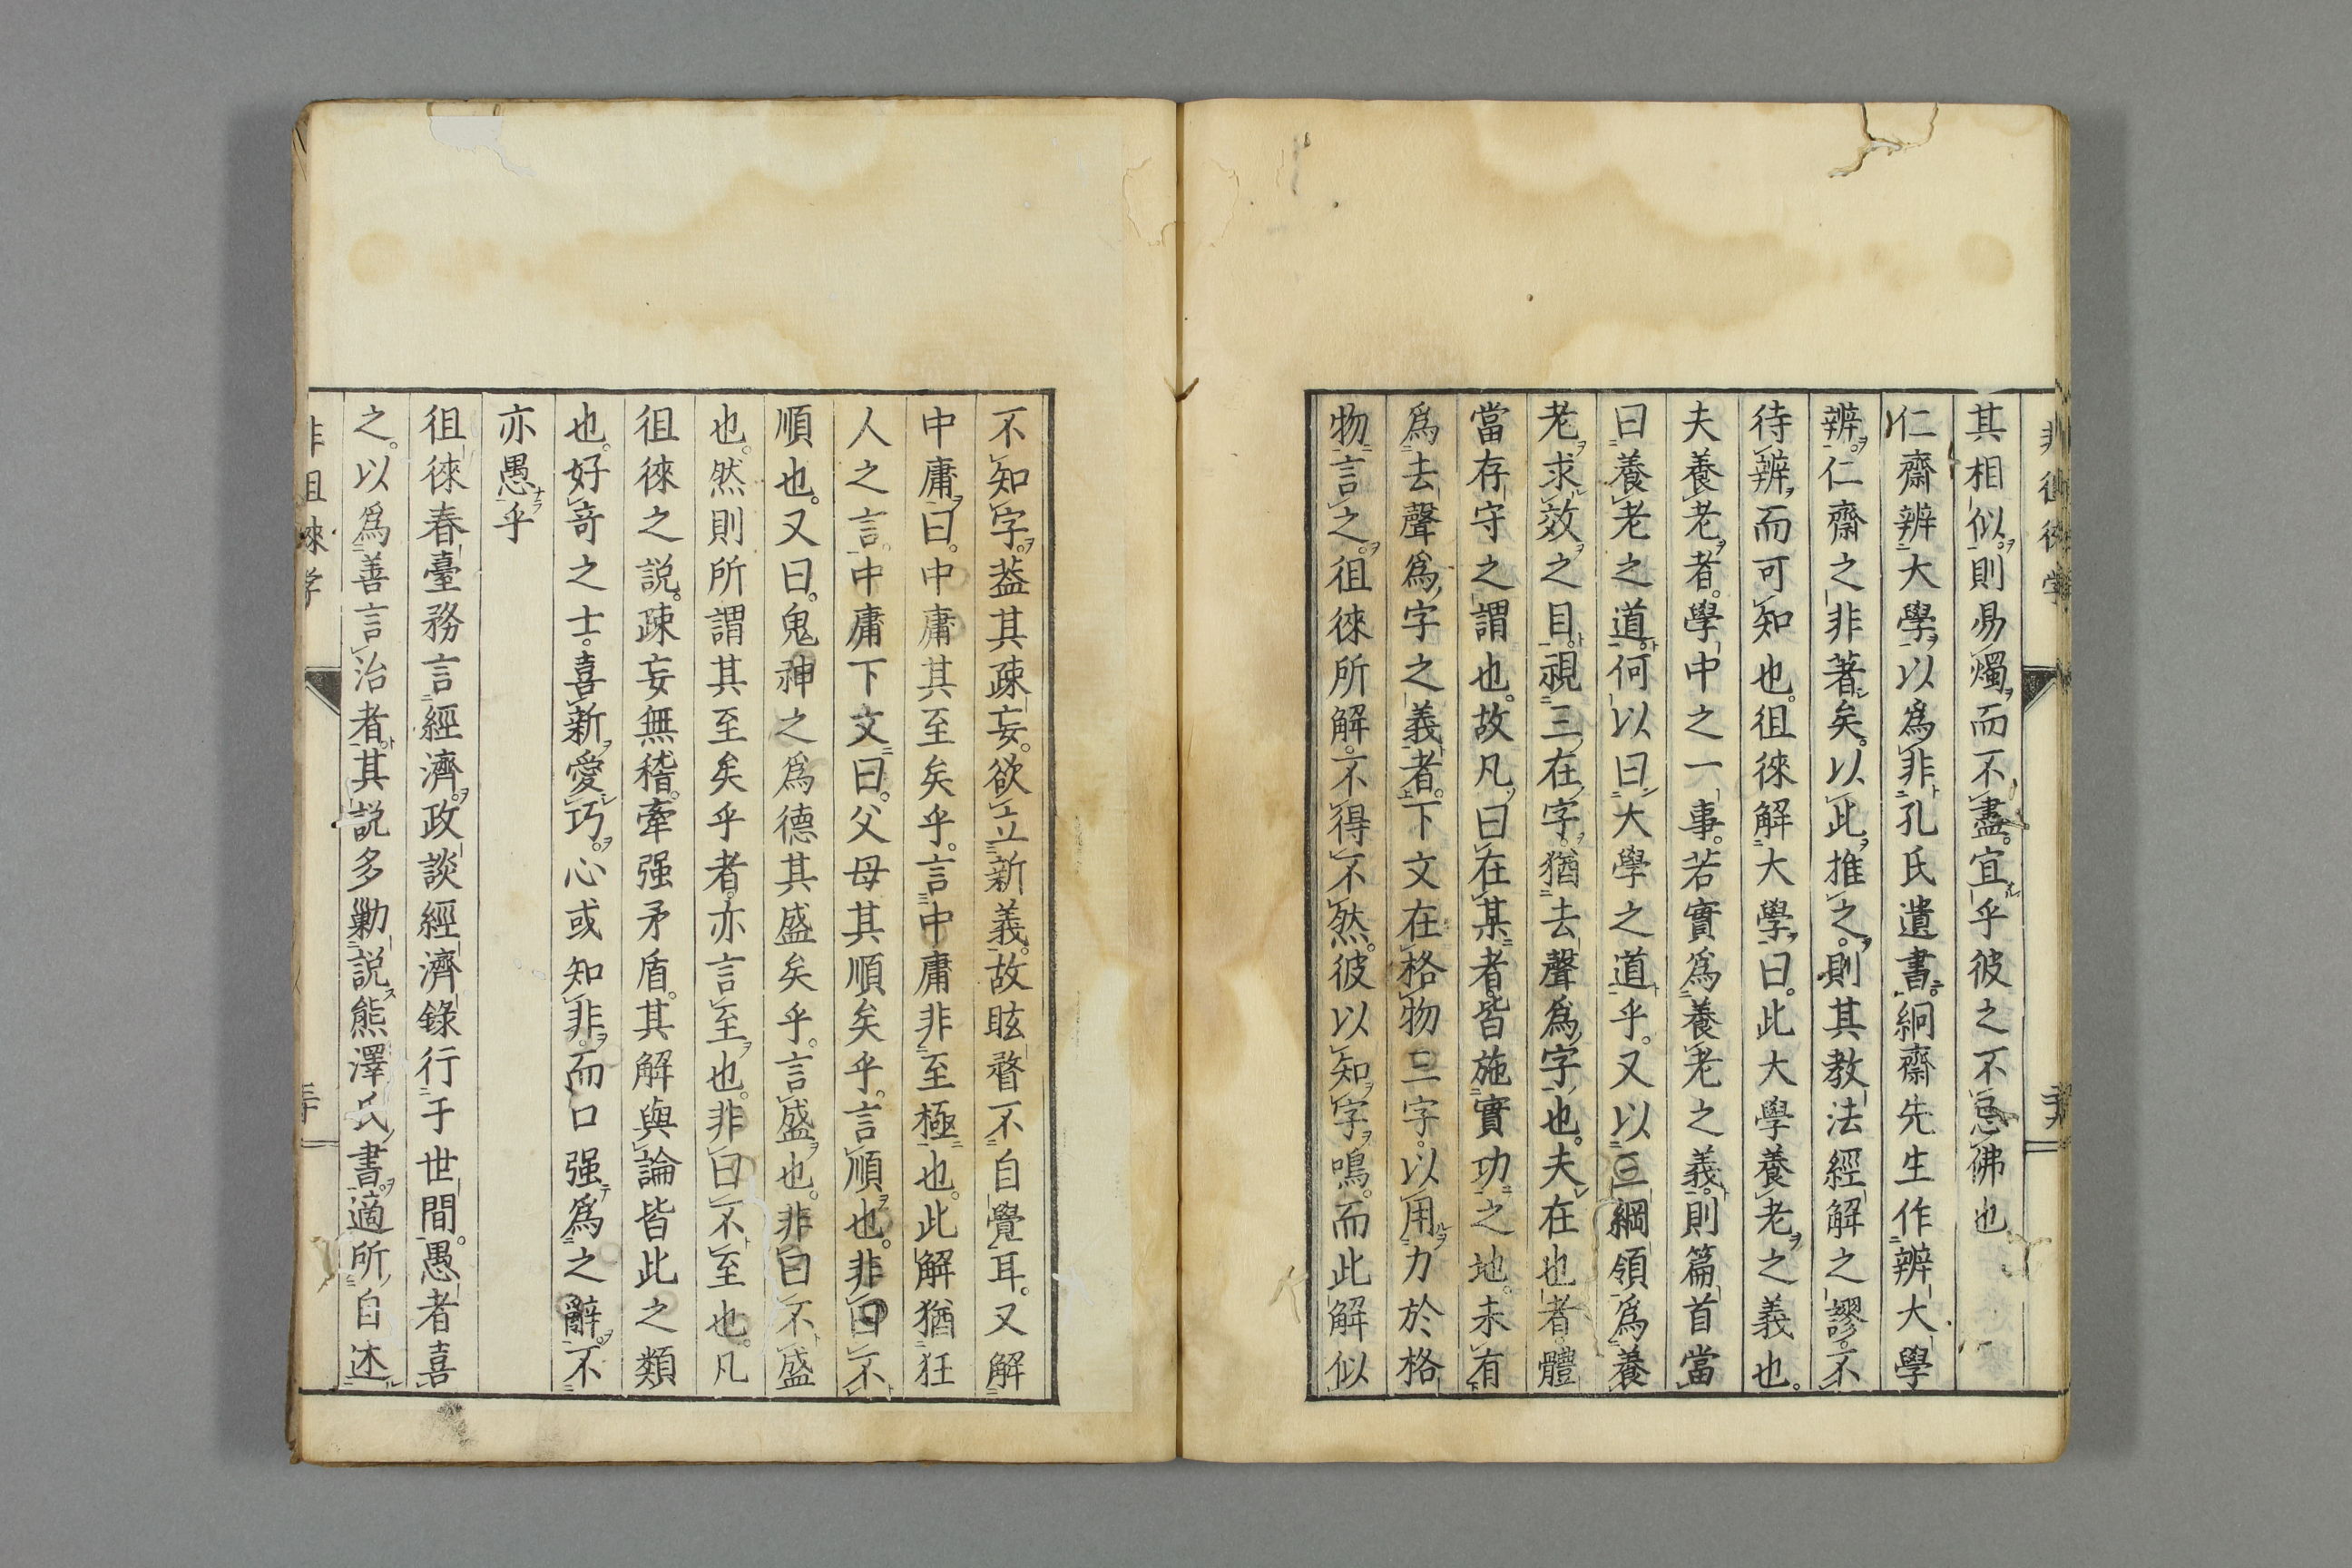 其相似。則易燭而不盡。宜乎彼之不忽佛也
仁齋辨大學。以爲非孔氏遺書。絅齋先生作辨大學
辨。仁齋之非著矣。以此推之。則其教法經解之謬。不
待辨而可知也。徂徠解大學曰。此大學養老之義也。
夫養老者。學中之一事。若實爲養老之義。則篇首當
曰養老之道。何以曰大學之道乎。又以三綱領爲養
老。求效之目。視三在字。猶去聲爲字也。夫在也者。體
當存守之謂也。故凡曰在某者。皆施實功之地。未有
爲去聲爲字之義者。下文在格物三字。以用力於格
物言之。徂徠所解。不得不然。彼以知字鳴。而此解似
不知字。葢其疎妄。欲立新義。故眩瞀不自覺耳。又解
中庸曰。中庸其至矣乎。言中庸非至極也。此解猶狂
人之言。中庸下文曰。父母其順矣乎。言順也。非曰不
順也。又曰。鬼神之爲德其盛矣乎。言盛也。非曰不盛
也。然則所謂其至矣乎者。亦言至也。非曰不至也。凡
徂徠之説。疎妄無稽。牽强矛盾。其解與論皆此之類
也。好竒之士。喜新愛巧。心或知非。而口强爲之辭。不
亦愚乎
徂徠春臺務言經濟。政談經濟錄行于世間。愚者喜
之。以爲善言治者。其説多勦説熊澤氏書。適所自述
非徂徠學